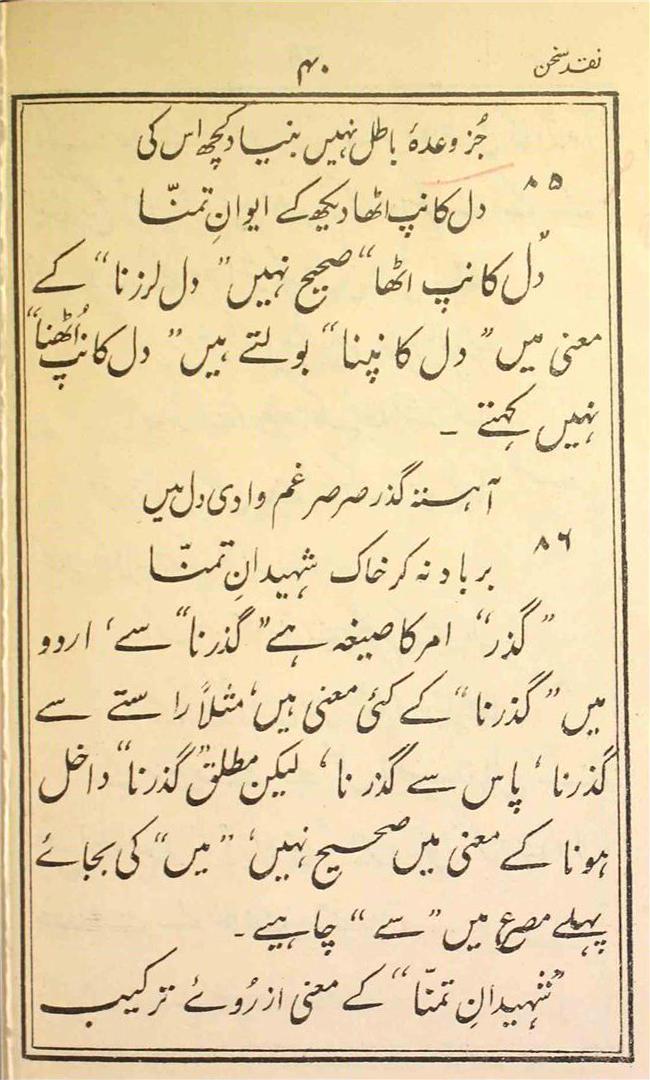 نقد سخن
۴۰
جُز وعدۂ باطل نہیں بنیاد کچھ اس کی
۸۵
دل کانپ اٹھا دیکھ کے ایوانِ تمنّا
”دل کانپ اٹھا“ صحیح نہیں ”دل لرزنا“ کے
معنی میں ”دل کانپنا“ بولتے ہیں ”دل کانپ اُٹھنا“
نہیں کہتے ۔
آہستہ گذر صرصرِ غم وادی دل میں
۸۶
برباد نہ کر خاک شہیدانِ تمنّا
”گذر“ امر کا صیغہ ہے ”گذرنا“ سے، اردو
میں ”گذرنا“ کے کئی معنی ہیں، مثلاً راستے سے
گذرنا، پاس سے گذرنا، لیکن مطلق ”گذرنا“ داخل
ہونا کے معنی میں صحیح نہیں، ”میں“ کی بجائے
پہلے مصرع میں ”سے“ چاہیے ۔
”شہیدانِ تمنّا“ کے معنی از رُوئے ترکیب